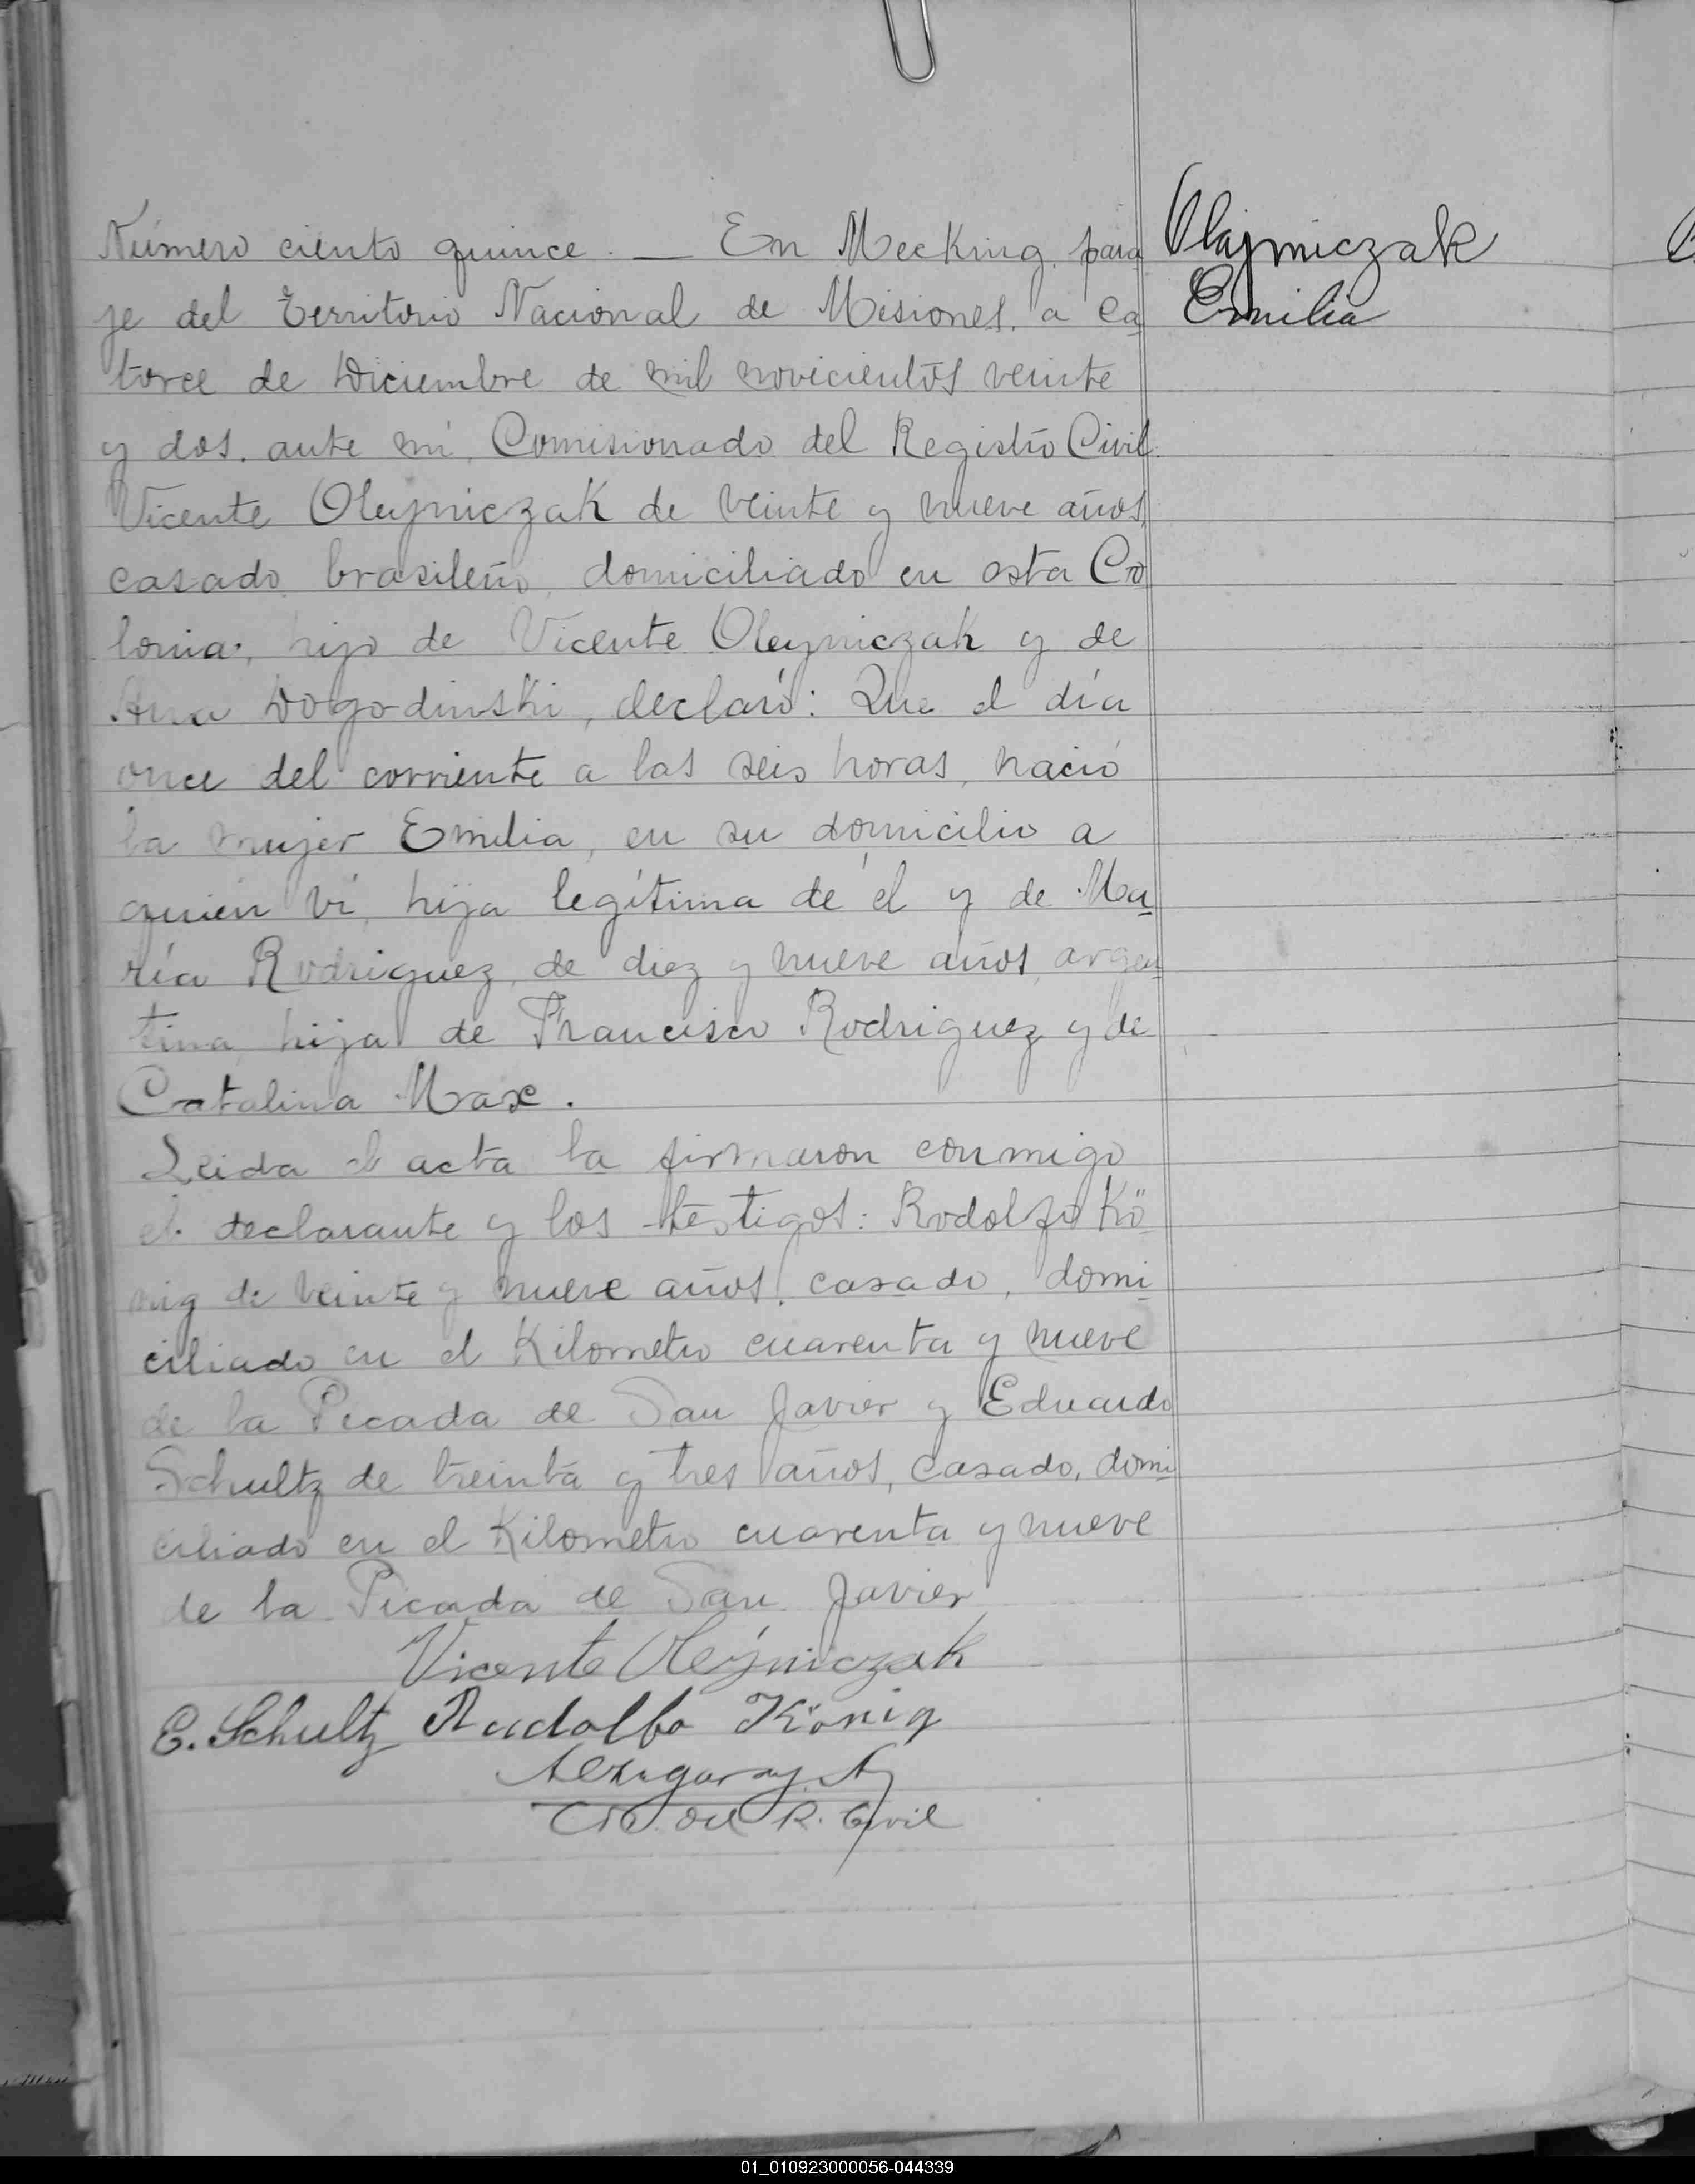 Número ciento quince. — En Mecking, para
je del Territorio Nacional de Misiones, a ca
torce de Diciembre de mil novecientos veinte
y dos, ante mí, Comisionado del Registro Civil
Vicente Olejniczak de veinte y nueve años,
casado, brasileño, domiciliado en esta Co
lonia, hijo de Vicente Olejniczak y de
Ana Dogodinski, declaró: Que el día
once del corriente a las seis horas, nació
la mujer Emilia, en su domicilio a
quien ví, hija legítima de él y de Ma
ría Rodriguez, de diez y nueve años, argen
tina, hija de Francisco Rodriguez y de
Catalina Max.
Leida el acta la firmaron conmigo
el declarante y los testigos: Rodolfo Kö
nig de veinte y nueve años, casado, domi
ciliado en el Kilometro cuarenta y nueve
de la Picada de San Javier y Eduardo
Schultz de treinta y tres años, casado, domi
ciliado en el Kilometro cuarenta y nueve
de la Picada de San Javier
Vicente Olejniczak
E. Schultz Rudolfo König
R. Civil
Olajniczak
Emilia
01_010923000056-044339